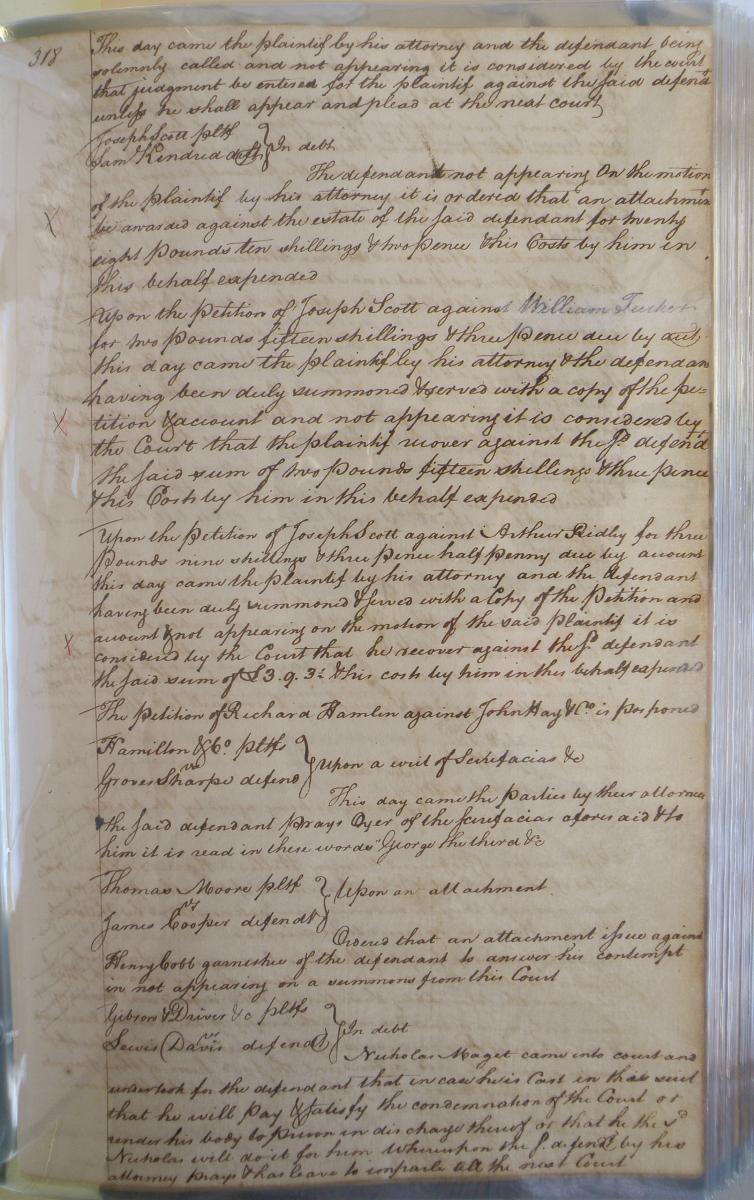 318
This day came the plaintif by his attorney and the defendant being
solemnly called and not appearing it is considered by the court
that judgment be entered for the plaintif against the said defend.t
unless he shall appear and plead at the next court
Joseph Scott pltf
vs
Sam Kindred deft } In debt
The defendant not appearing On the motion
of the plaintif by his attorney it is ordered that an attachmen
be awarded against the estate of the said defendant for twenty
eight Pounds ten shillings & two pence & his Costs by him in
this behalf expended
Upon the Petition of Joseph Scott against William Tucker
for two Pounds fifteen shillings & three pence due by acct.
this day came the plaintif by his attorney & the defendan
having been duly summoned & served with a copy of the pe=
tition & account and not appearing it is considered by
the Court that the plaintif recover against the s.d defend
the said sum of two Pounds fifteen shillings & three pence
& his Costs by him in this behalf expended
Upon the Petition of Joseph Scott against Arthur Ridley for three
Pounds nine shillings & three pence half penny due by account
this day came the plaintif by his attorney and the defendant
having been duly summoned & served with a Copy of the Petition and
account & not appearing on the motion of the said plaintif it is
considered by the Court that he recover against the s.d defendant
the said sum of £3. 9. 3½ & his costs by him in this behalf expended
The Petition of Richard Hamlin against John Hay & Co. is postponed
Hamilton & Co. pltfs
vs
Groves Sharpe defend } Upon a writ of Scirefacias &c
This day came the Parties by their attornies
& the said defendant prays Oyer of the scirefacias aforesaid & to
him it is read in these words "George the third &c
Thomas Moore pltf
vs
James Cooper defendt } Upon an attachment
Ordered that an attachment issue against
Henry Cobb garnishee of the defendant to answer his contempt
in not appearing on a summons from this Court
Gibson & Driver &c pltfs
vs
Lewis Davis defendt } In debt
Nicholas Maget came into court and
undertook for the defendant that in case he is Cast in this suit
that he will pay & satisfy the condemnation of the Court or
render his body to prison in discharge thereof or that he the s.d
Nicholas will do it for him Whereupon the s.d defendt by his
attorney prays & has leave to imparle till the next Court